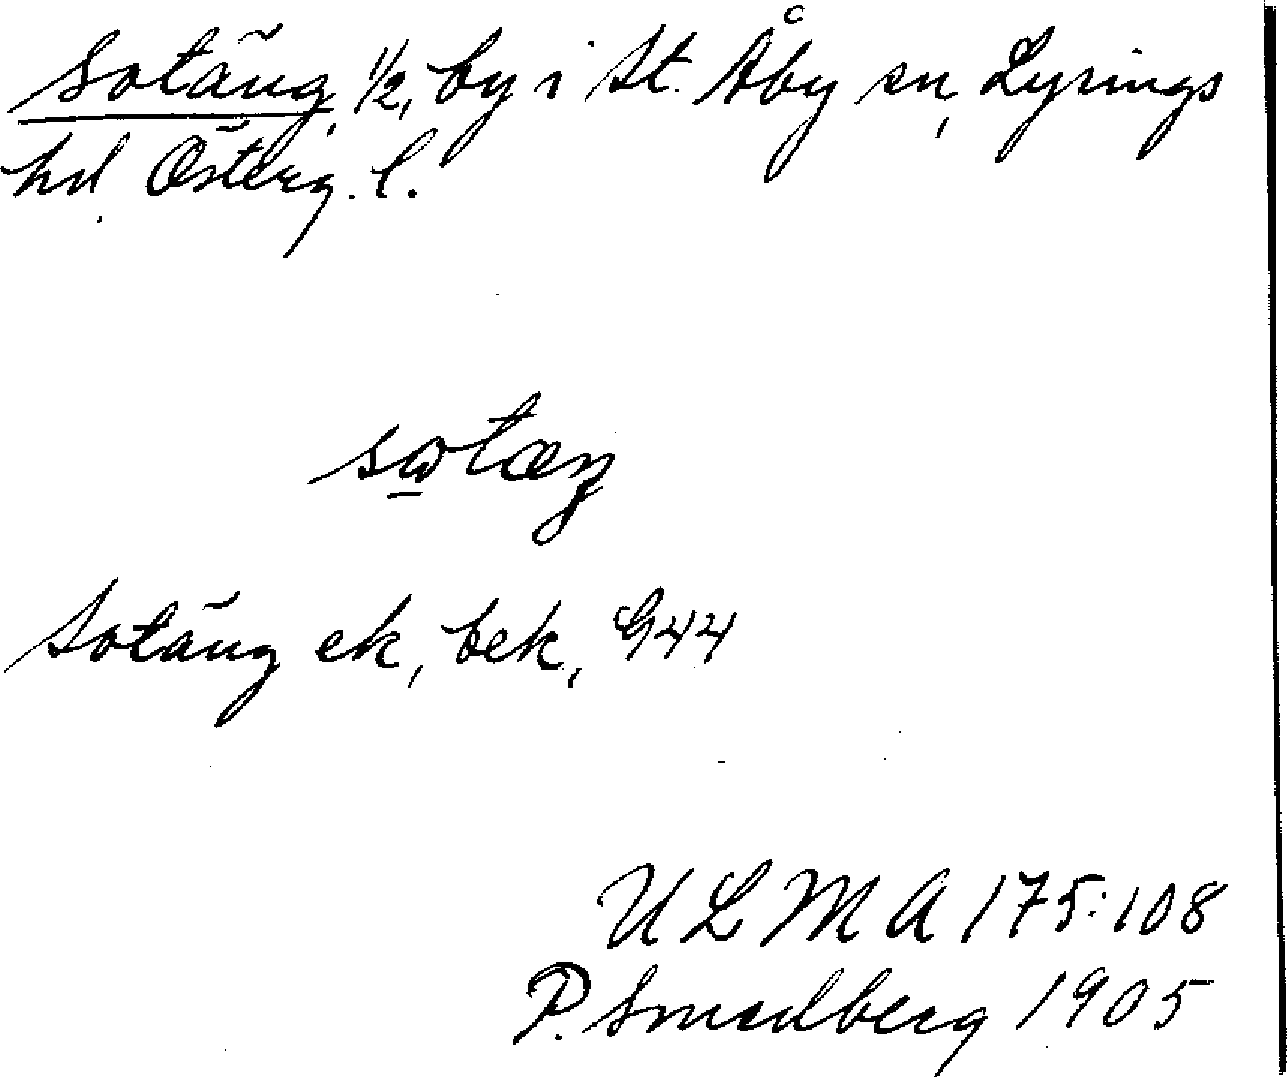 Sotäng, 1/2, by i St. Åby sn, Lysings
hd. Österg. l.
sωtæŋ
Sotäng ek, bek, G44
ULMA 175:108
P. Smedberg 1905